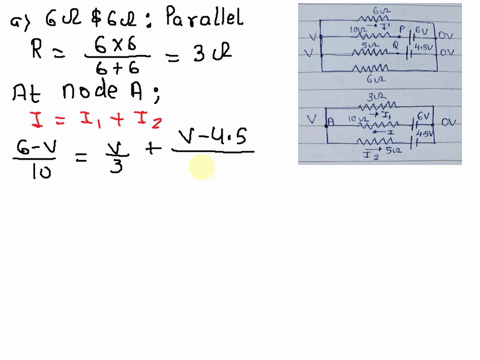 a) 6Ω & 6Ω : Parallel
R = 6×6 / 6+6 = 3Ω
At node A;
I = I₁ + I₂
6-V / 10 = V / 3 + V-4.5
6Ω
I'
10Ω P 6V
V 0V
5Ω Q 4.5V
V 0V
6Ω
3Ω
I₁
V A 10Ω 6V 0V
I 4.5V
I₂ 5Ω